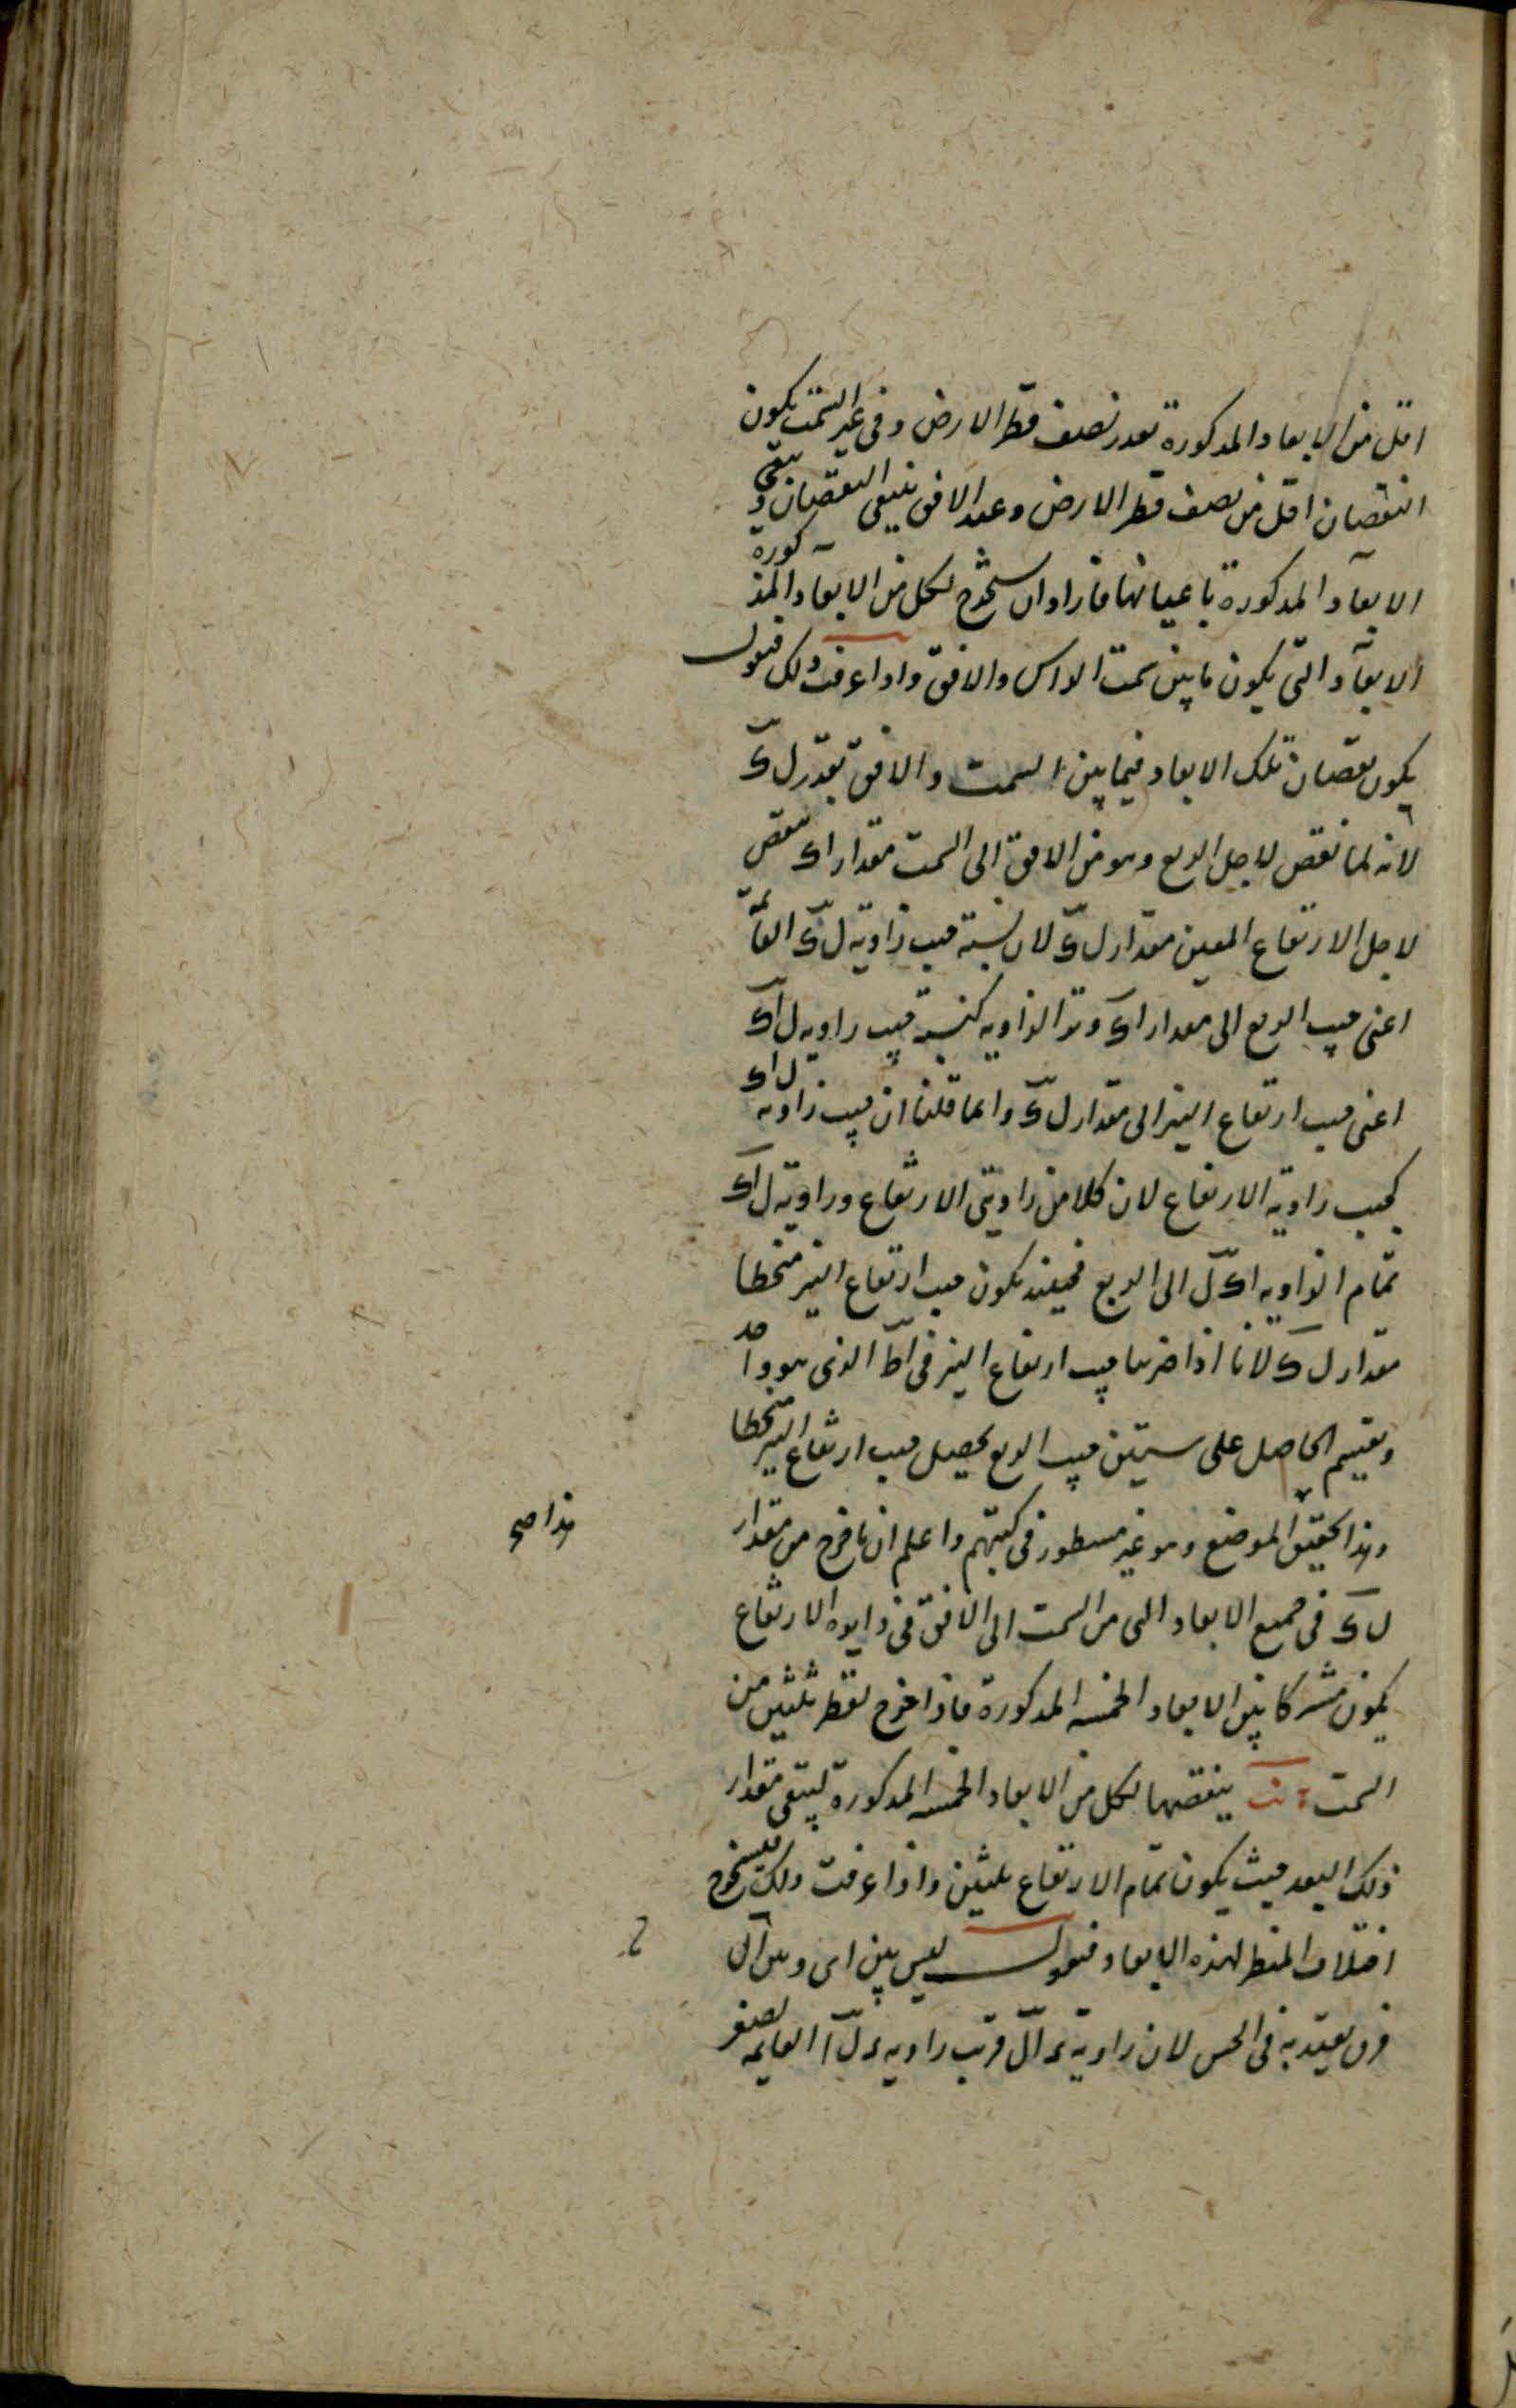 اقل من الابعاد المذكورة بقدر نصف قطر الارض وفى غير السمت يكون
النقصان اقل من نصف قطر الارض وعند الافق ينتفى النقصان ويبقى
الابعاد المذكورة باعيانها فاراد ان يستخرج لكل من الابعاد المذكورة
الابعاد التى يكون ما بين سمت الراس والافق واذا عرفت ذلك فنقول
يكون نقصان تلك الابعاد فيما بين السمت والافق بقدر ل ک
لانه لما نقص لاجل الربع وهو من الافق الى السمت مقدار اک نقص
لاجل الارتفاع المعين مقدار ل ک لان نسبة جيب زاوية ل ک القائمة
اعنى جيب الربع الى مقدار اک وتر الزاوية كنسبة جيب زاوية ل اک
اعنى جيب ارتفاع النير الى مقدار ل ک وانما قلنا ان جيب زاوية ل اک
كجيب زاوية الارتفاع لان كلا من زاويتى الارتفاع وزاوية ل اک
تمام الزاوية اک ل الى الربع فحينئذ يكون جيب ارتفاع النير منحطا
مقدار ل ک لانا اذا ضربنا جيب ارتفاع النير فى اط الذى هو واحد
ونقسم الحاصل على ستين جيب الربع يحصل جيب ارتفاع النير منحطا
وهذا تحقيق الموضع وهو غير مسطور فى كتبهم واعلم ان ما خرج من مقدار
هذا صح
ل ک فى جميع الابعاد التى من السمت الى الافق فى زاوية الارتفاع
يكون مشتركا بين الابعاد الخمسة المذكورة فاذا خرج لقطر ثلثين من
السمت ينقصها لكل من الابعاد الخمسة المذكورة ليبقى مقدار
ذلك البعد حيث يكون تمام الارتفاع ثلثين واذا عرفت ذلك فيستخرج
اختلاف المنظر لهذه الابعاد فنقول ليس بين اى وبين ال
فرق يعتد به فى الحس لان زاوية ى ال قرب زاوية ى ل ا القايمة لصغر